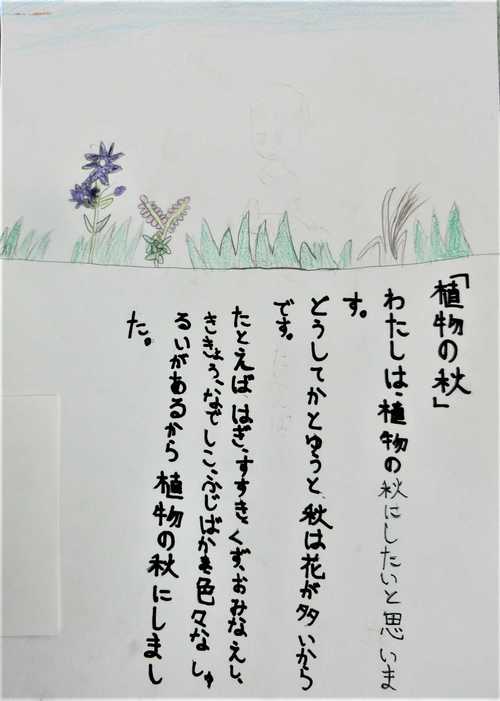 「植物の秋」
わたしは、植物の秋にしたいと思いま
す。
どうしてかとゆうと、秋は花が多いから
です。
たとえば、はぎ、すすき、くず、おみなえし、
ききょう、なでしこ、ふじばかま色々なしゅ
るいがあるから植物の秋にしまし
た。